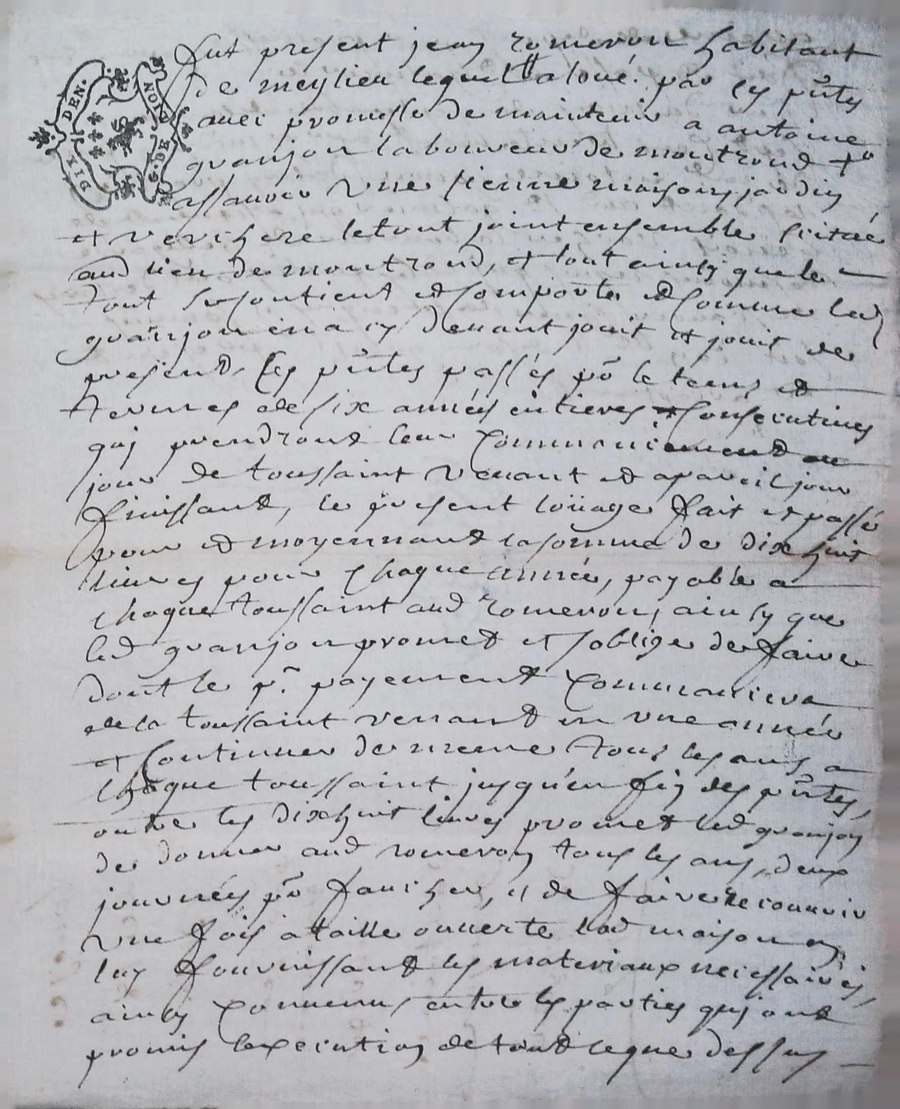 DIX DEN. NOIS DE
fut present jean romeron habitant
de meylieu lequel a loué par ces pntes
avec promesse de maintenir a antoine
granjon laboureur de montrond
assavoir une sienne maison, jardin
et verchere le tout joint ensemble scitué
aud lieu de montrond, et tout ainsy que le
tout se contient et comporte et comme led
granjon en a cy devant jouit et jouit de
present, ces pntes passés po le tems et
termes de six années entieres et consecutives
qui prendront leur commencement au
jour de toussaint venant et a pareil jour
finissant, le present loüage fait et passé
pour et moyennant la somme de dix huit
livres pour chaque année, payable a
chaque toussaint aud romeron, ainsy que
led granjon promet et s'oblige de faire
dont le pr. payement commancera
de la toussaint venant en une année
et continuer de meme tous les ans a
chaque toussaint jusqu'en fin des pntes,
outre les dix huit livres promet led granjon
de donner aud romeron tous les ans, deux
journées po faucher, et de faire recouvrir
une fois a taille ouverte lad maison en
luy fournissant les materiaux necessaires,
ainsy convenu entre les parties qui ont
promis l'execution de tout ce que dessus